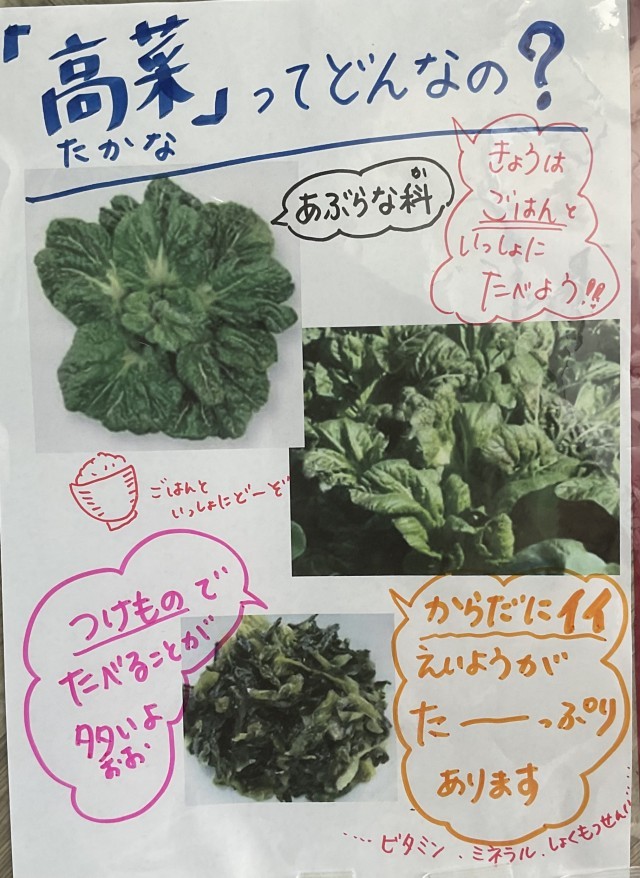 「高菜」ってどんなの?
たかな
あぶらな科
か
きょうは
ごはんと
いっしょに
たべよう!!
ごはんと
いっしょにどーぞ
つけもので
たべることが
多いよ
おお
からだにイイ
えいようが
たーっぷり
あります
....ビタミン.ミネラル.しょくもつせんい....